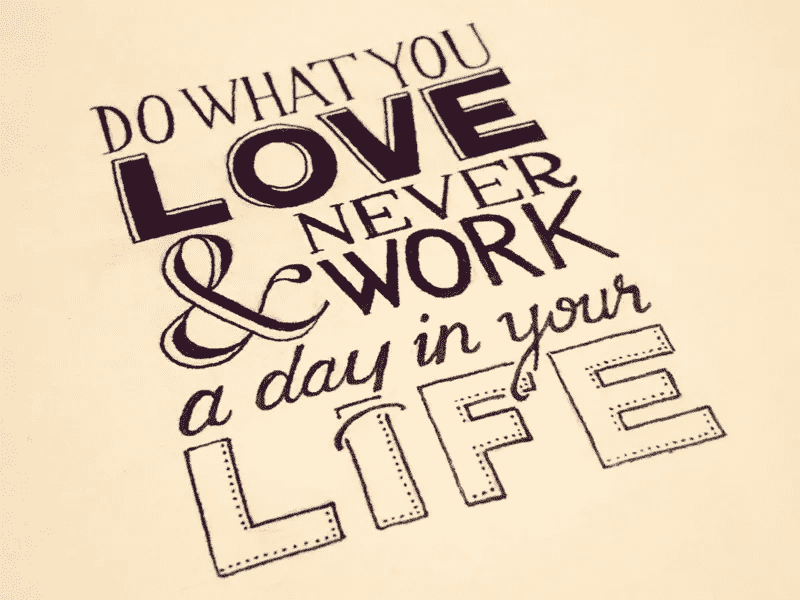 DO WHAT YOU
LOVE
& NEVER
WORK
a day in your
LIFE